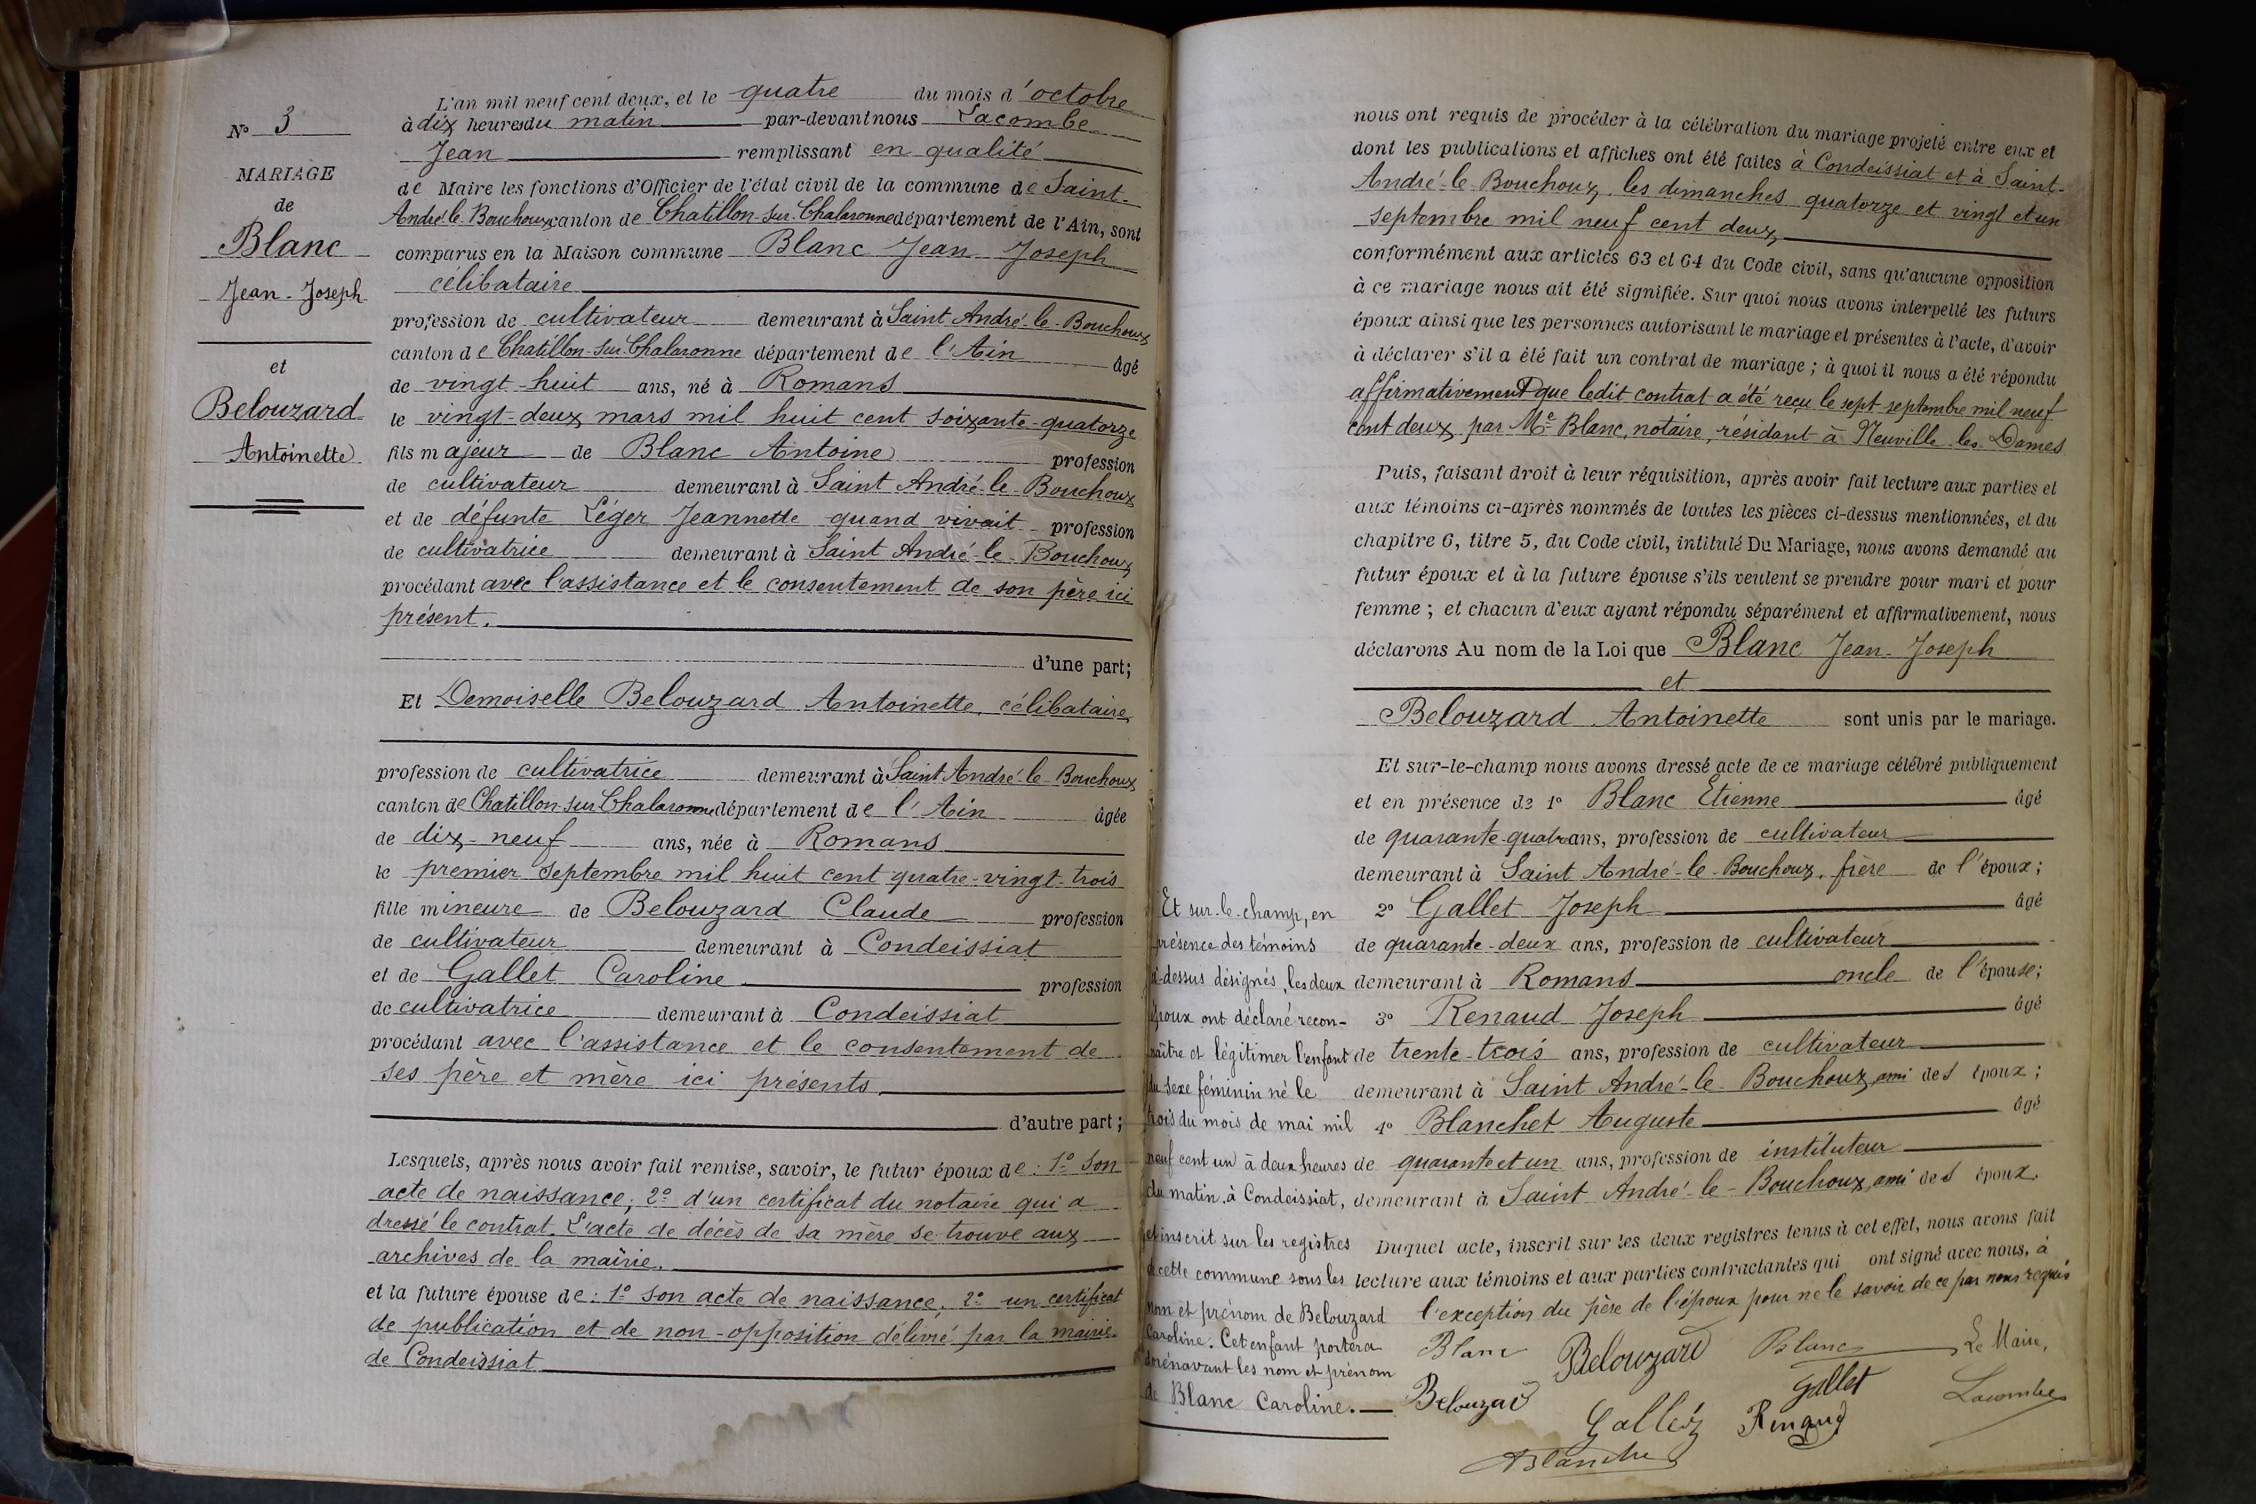 N° 3
MARIAGE
de
Blanc
Jean-Joseph
et
Belouzard
Antoinette
L'an mil neuf cent deux, et le quatre du mois d'octobre
à dix heures du matin par-devant nous Lacombe
Jean remplissant en qualité
de Maire les fonctions d'Officier de l'état civil de la commune de Saint-
André-le-Bouchoux canton de Chatillon-sur-Chalaronne département de l'Ain, sont
comparus en la Maison commune Blanc Jean Joseph
célibataire
profession de cultivateur demeurant à Saint André-le-Bouchoux
canton de Chatillon-sur-Chalaronne département de l'Ain âgé
de vingt-huit ans, né à Romans
le vingt-deux mars mil huit cent soixante-quatorze
fils majeur de Blanc Antoine profession
de cultivateur demeurant à Saint André-le-Bouchoux
et de défunte Léger Jeannette quand vivait profession
de cultivatrice demeurant à Saint André-le-Bouchoux
procédant avec l'assistance et le consentement de son père ici
présent.
d'une part;
Et Demoiselle Belouzard Antoinette, célibataire
profession de cultivatrice demeurant à Saint André-le-Bouchoux
canton de Chatillon-sur-Chalaronne département de l'Ain âgée
de dix-neuf ans, née à Romans
le premier septembre mil huit cent quatre-vingt-trois
fille mineure de Belouzard Claude profession
de cultivateur demeurant à Condeissiat
et de Gallet Caroline profession
de cultivatrice demeurant à Condeissiat
procédant avec l'assistance et le consentement de
ses père et mère ici présents
d'autre part;
Lesquels, après nous avoir fait remise, savoir, le futur époux de : 1° son
acte de naissance; 2° d'un certificat du notaire qui a
dressé le contrat. L'acte de décès de sa mère se trouve aux
archives de la mairie.
et la future épouse de : 1° son acte de naissance. 2° un certificat
de publication et de non-opposition délivré par la mairie
de Condeissiat
nous ont requis de procéder à la célébration du mariage projeté entre eux et
dont les publications et affiches ont été faites à Condeissiat et à Saint-
André-le-Bouchoux, les dimanches quatorze et vingt et un
septembre mil neuf cent deux
conformément aux articles 63 et 64 du Code civil, sans qu'aucune opposition
à ce mariage nous ait été signifiée. Sur quoi nous avons interpellé les futurs
époux ainsi que les personnes autorisant le mariage et présentes à l'acte, d'avoir
à déclarer s'il a été fait un contrat de mariage ; à quoi il nous a été répondu
affirmativement que ledit contrat a été reçu le sept septembre mil neuf
cent deux par Me Blanc, notaire, résidant à Neuville-les-Dames
Puis, faisant droit à leur réquisition, après avoir fait lecture aux parties et
aux témoins ci-après nommés de toutes les pièces ci-dessus mentionnées, et du
chapitre 6, titre 5, du Code civil, intitulé Du Mariage, nous avons demandé au
futur époux et à la future épouse s'ils veulent se prendre pour mari et pour
femme ; et chacun d'eux ayant répondu séparément et affirmativement, nous
déclarons Au nom de la Loi que Blanc Jean-Joseph
et
Belouzard Antoinette sont unis par le mariage.
Et sur-le-champ nous avons dressé acte de ce mariage célébré publiquement
et en présence de 1° Blanc Etienne âgé
de quarante-quatre ans, profession de cultivateur
demeurant à Saint André-le-Bouchoux, frère de l'époux;
2° Gallet Joseph âgé
de quarante-deux ans, profession de cultivateur
demeurant à Romans oncle de l'épouse;
3° Renaud Joseph âgé
de trente-trois ans, profession de cultivateur
demeurant à Saint André-le-Bouchoux, ami des époux;
4° Blanchet Auguste âgé
de quarante et un ans, profession de instituteur
demeurant à Saint André-le-Bouchoux, ami des époux.
Duquel acte, inscrit sur les deux registres tenus à cet effet, nous avons fait
lecture aux témoins et aux parties contractantes qui ont signé avec nous, à
l'exception du père de l'époux pour ne le savoir de ce par nous requis
Et sur-le-champ, en
présence des témoins
ci-dessus désignés, les deux
époux ont déclaré recon-
naître et légitimer l'enfant
du sexe féminin né le
trois du mois de mai mil
neuf cent un à deux heures
du matin à Condeissiat,
et inscrit sur les registres
de cette commune sous les
nom et prénom de Belouzard
Caroline. Cet enfant portera
dorénavant les nom et prénom
de Blanc Caroline.
Blanc Belouzard Blanc Le Maire,
Belouzard Gallet Lacombe
Gallet Renaud
Blanchet